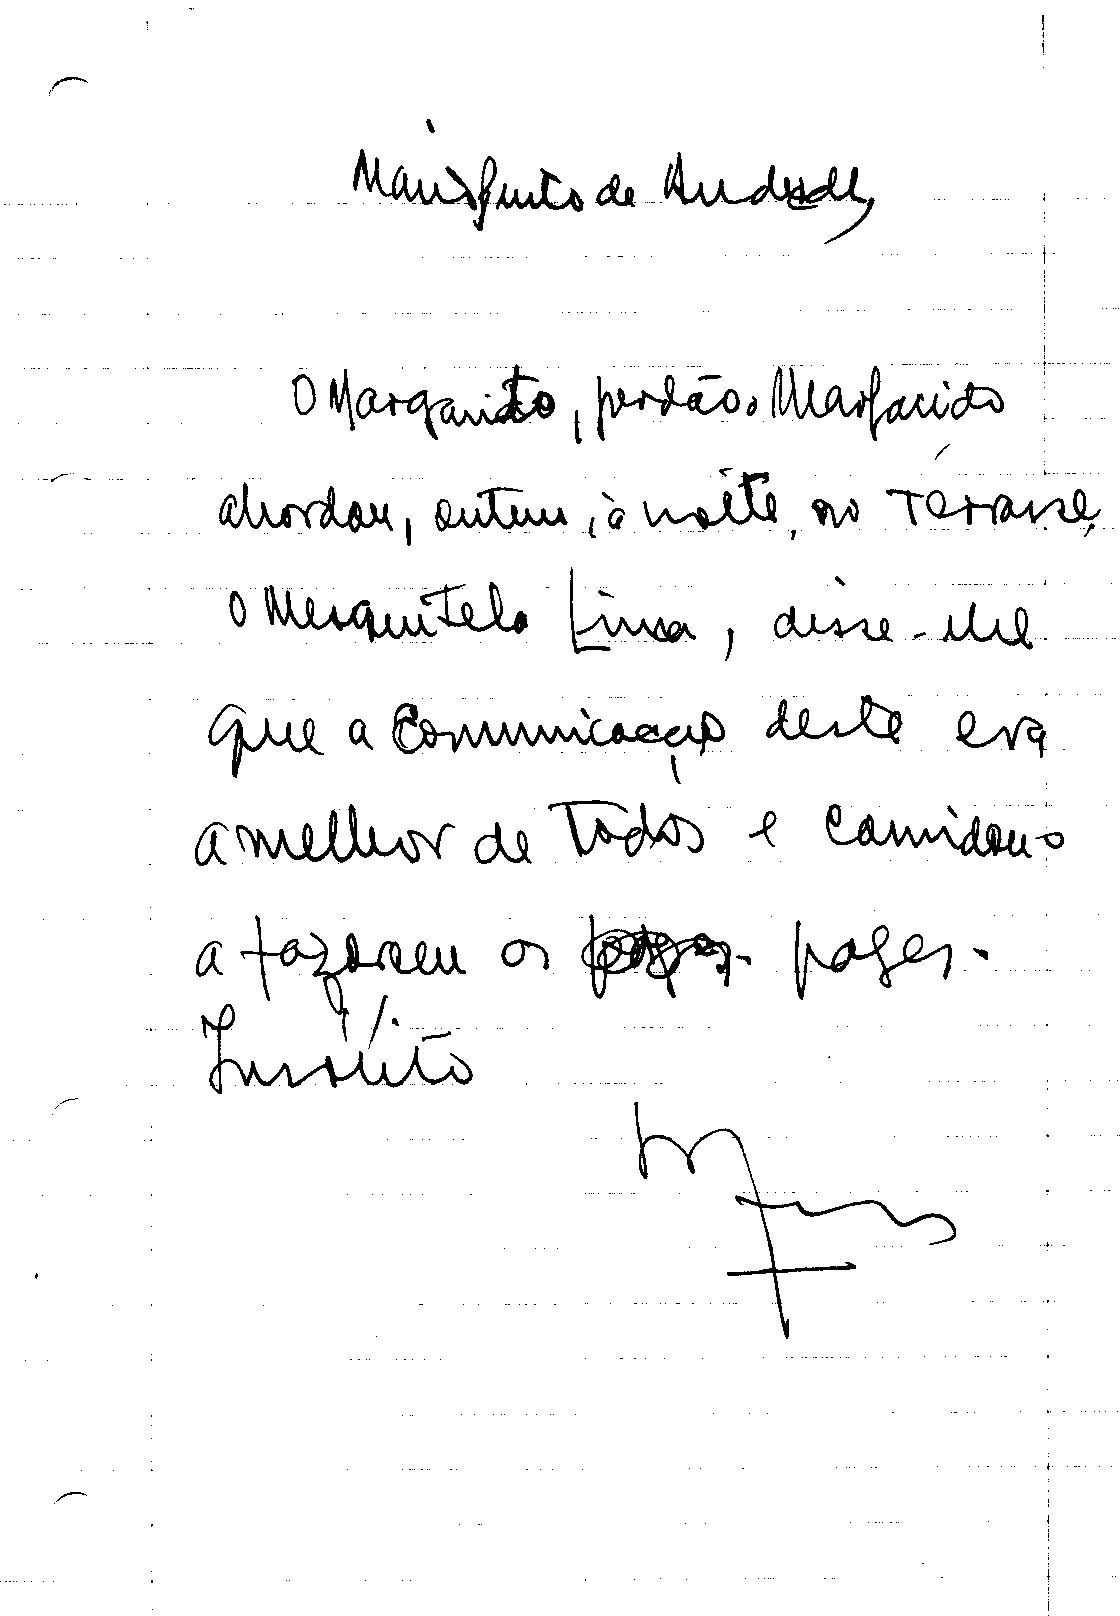 de Andrade,
O Margarido, perdão o Margarido
abordou, ontem, à noite, no Terrasse,
o Mesquitela Lima, disse-lhe
que a comunicação deste era
a melhor de todos e convidou-o
a fazerem as pazes.
Insólito